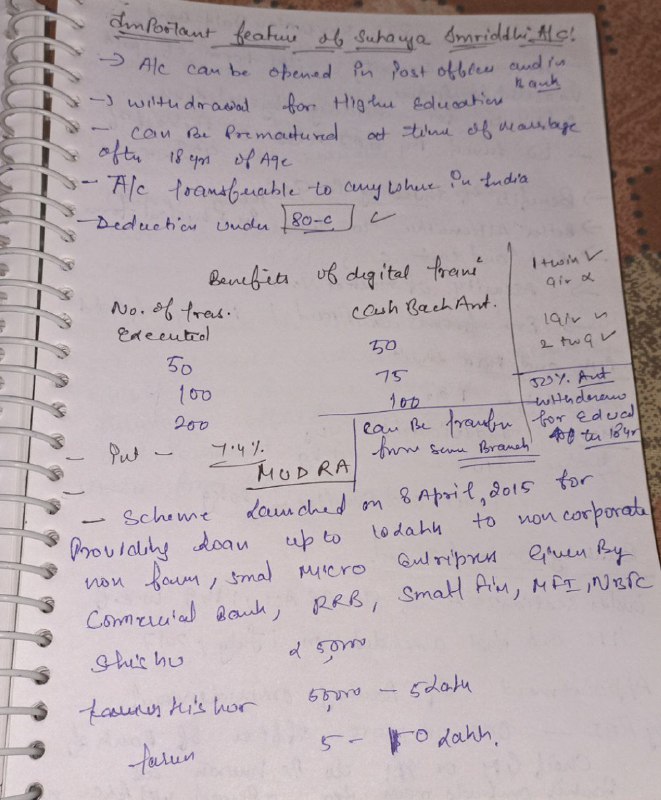 Important feature of Sukanya Smriddhi A/c!
→ A/c can be opened in Post offices and in Bank
→ withdrawal for Higher Education
- can Be Prematured at time of marriage
after 18 yrs of Age
- A/c transferable to anywhere in India
- Deduction under 80-c ✓
Benefits of digital trans
No. of tras. Executed
Cash Back Amt.
50 50
100 75
200 100
1 twin ✓
1 girl
2 twg ✓
50% Amt
withdraw
for Educal
18 yr
can Be transfer
from same Branch
- Int - 7.4%
MUDRA
- Scheme Launched on 8 April, 2015 for
Providing Loan up to 10 Lakh to non corporate
non farm, small micro Enterprises Given By
Commercial Bank, RRB, Small Fin, MFI, NBFC
Shishu < 50,000
Kishor 50,000 - 5 Lakh
tarun 5 - 10 Lakh.